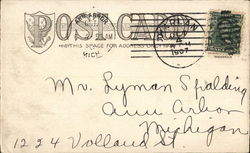 POSTCARD
THIS SPACE FOR ADDRESS ONLY
MICH
Mr. Lyman Spalding
Ann Arbor
Michigan
1224 Volland St